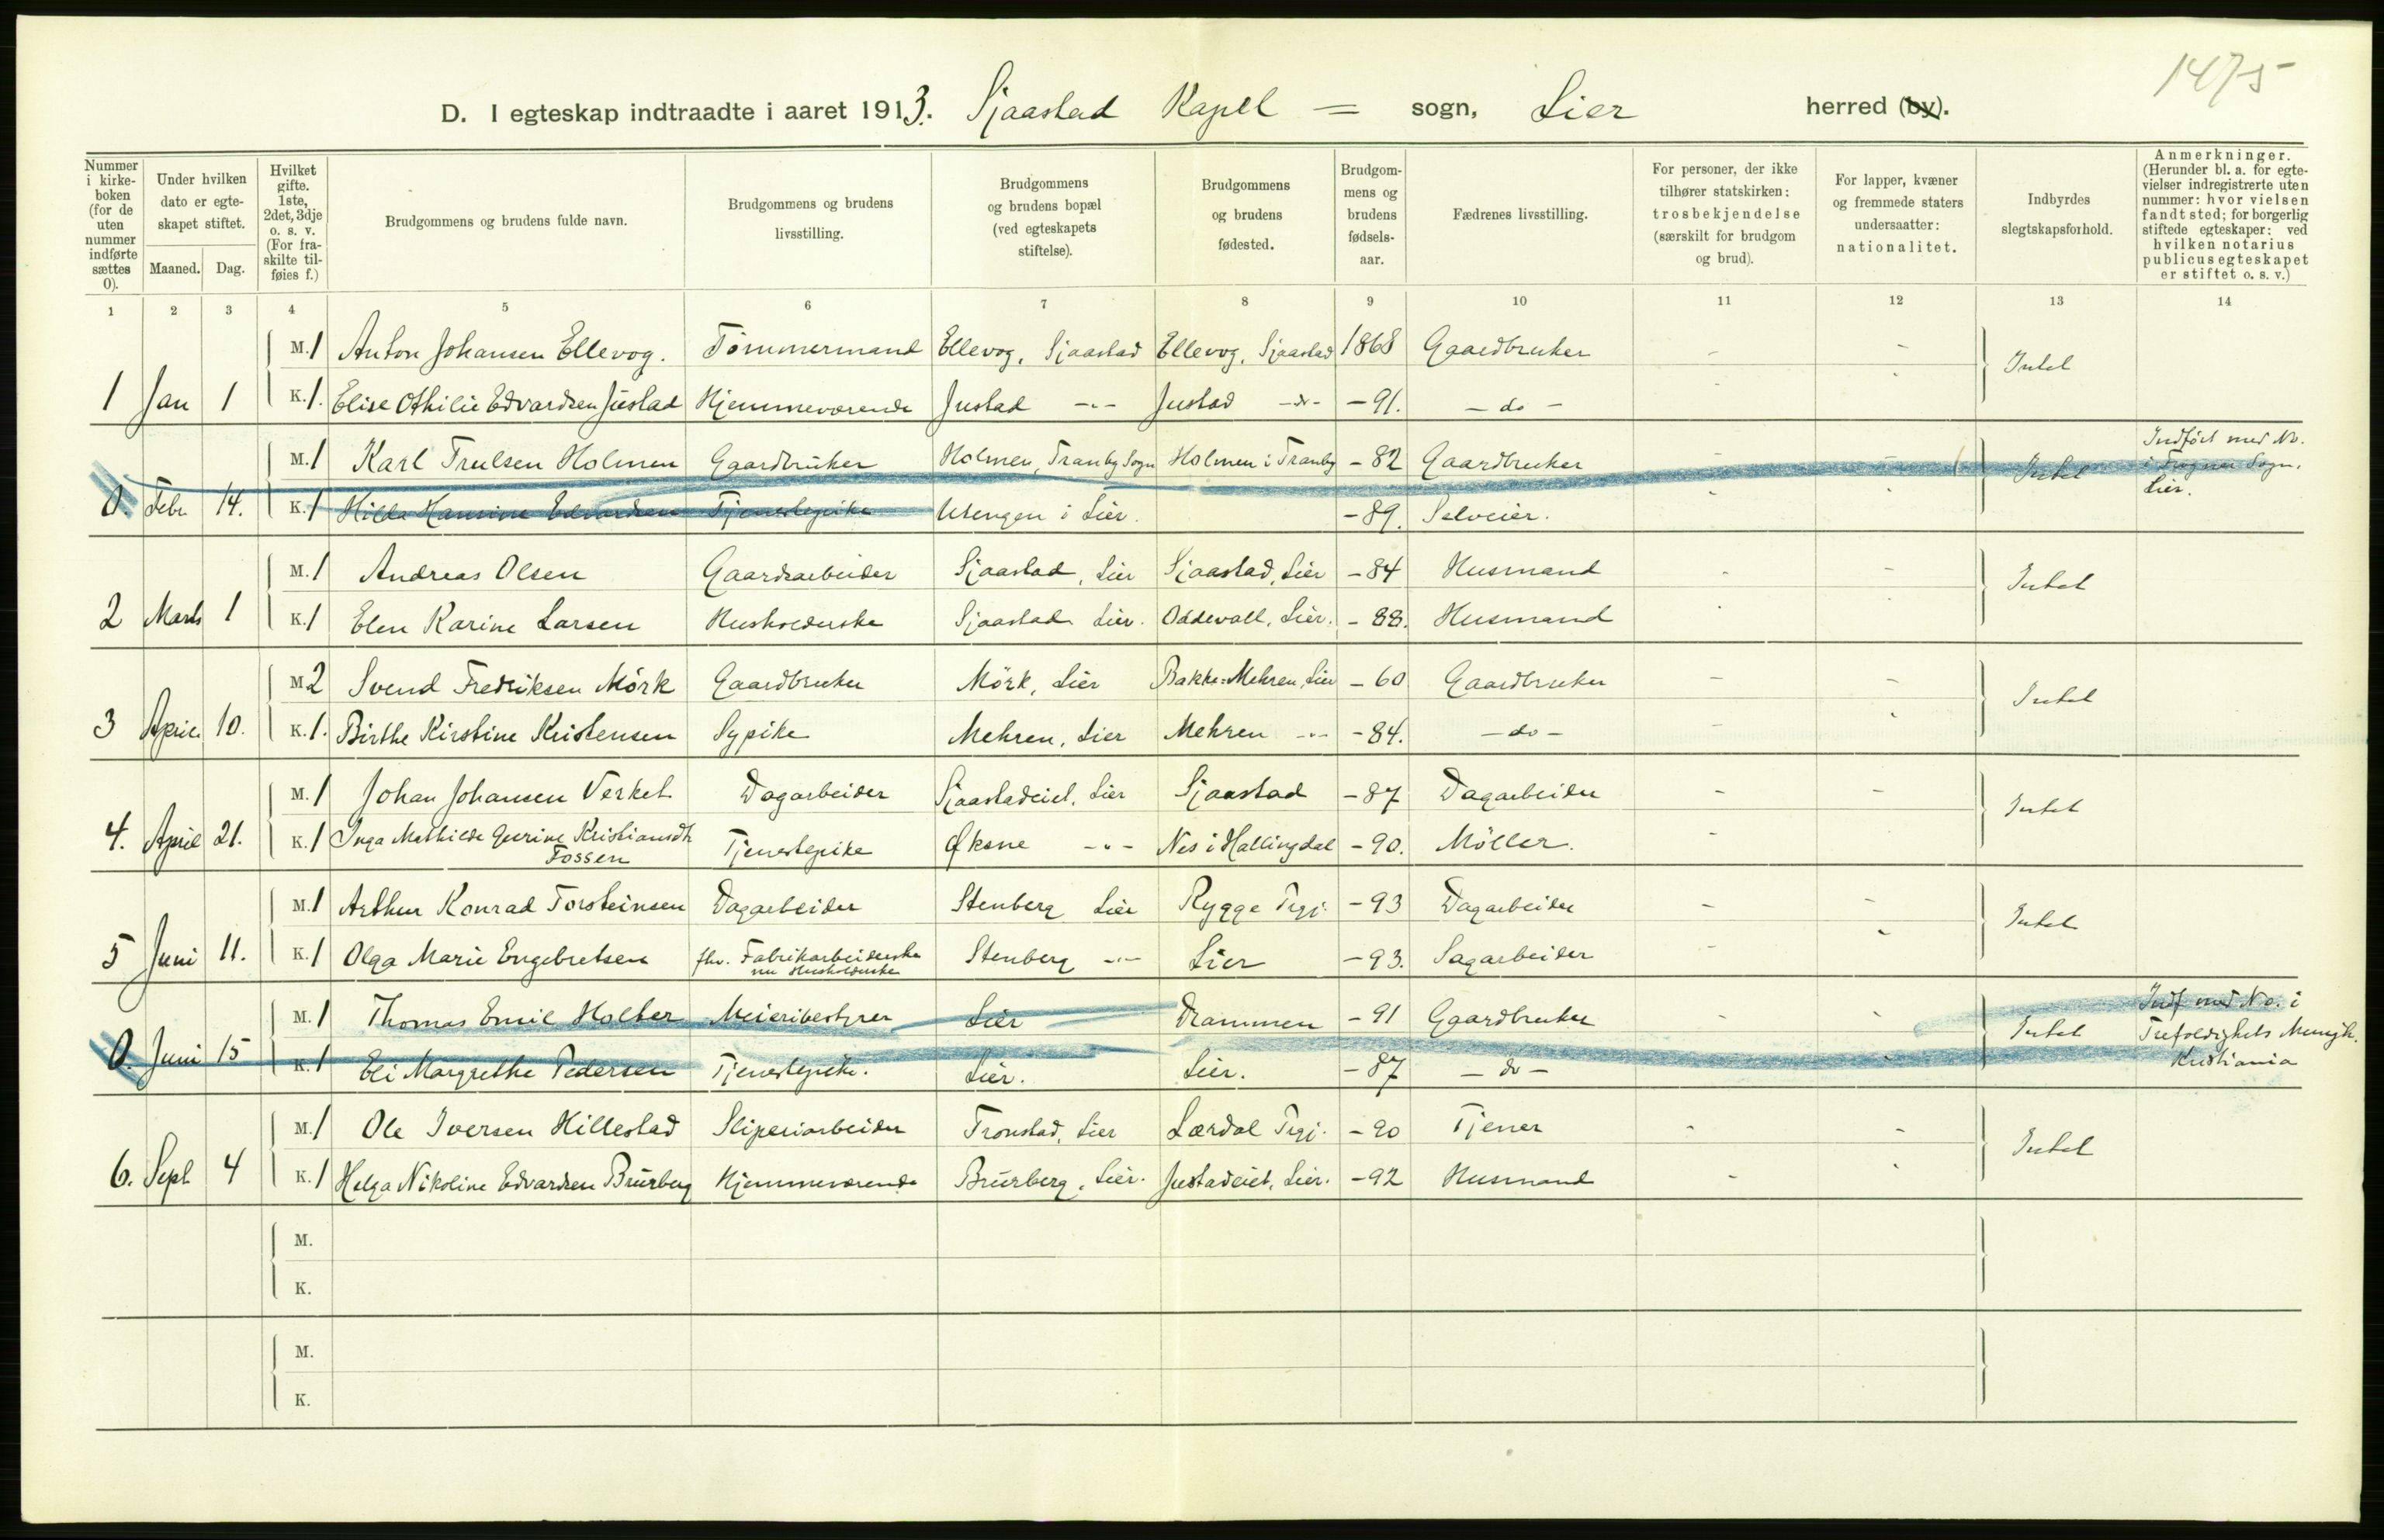 1475
D. I egteskap indtraadte i aaret 1913. Sjaastad Kapel = sogn, Lier herred (by).
Nummer i kirke-boken (for de uten nummer indførte sættes 0).
Under hvilken dato er egte-skapet stiftet.
Maaned. Dag.
Hvilket gifte. 1ste, 2det, 3dje o. s. v. (For fra-skilte til-føies f.)
Brudgommens og brudens fulde navn.
Brudgommens og brudens livsstilling.
Brudgommens og brudens bopæl (ved egteskapets stiftelse).
Brudgommens og brudens fødested.
Brudgom-mens og brudens fødsels-aar.
Fædrenes livsstilling.
For personer, der ikke tilhører statskirken: trosbekjendelse (særskilt for brudgom og brud).
For lapper, kvæner og fremmede staters undersaatter: nationalitet.
Indbyrdes slegtskapsforhold.
Anmerkninger. (Herunder bl. a. for egte-vielser indregistrerte uten nummer: hvor vielsen fandt sted; for borgerlig stiftede egteskaper: ved hvilken notarius publicus egteskapet er stiftet o. s. v.)
1 2 3 4 5 6 7 8 9 10 11 12 13 14
M. 1 Anton Johansen Ellevog. Tømmermand Ellevog, Sjaastad Ellevog, Sjaastad 1868 Gaardbruker - - Intet
1 Jan 1 K. 1. Elise Othilie Edvardsen Justad Hjemmeværende Justad -"- Justad -do- - 91. - do -
M. 1 Karl Trulsen Holmen Gaardbruker Holmen, Tranby Sogn Holmen i Tranby - 82 Gaardbruker - - Intet Indført med No. i Frogner Sogn, Lier.
0. Febr 14. K. 1 Hilda Hansine Edvardsen Tjenestepike Utengen i Lier. - 89. Selveier.
M. 1 Andreas Olsen Gaardsarbeider Sjaastad, Lier Sjaastad, Lier - 84 Husmand - - Intet
2 Marts 1 K. 1 Elen Karine Larsen Husholderske Sjaastad Lier. Oddevall, Lier. - 88. Husmand
M. 2 Svend Fredriksen Mörk Gaardbruker Mörk, Lier Bakke=Mehren, Lier - 60 Gaardbruker - - Intet
3 April 10. K. 1. Birthe Kirstine Kristensen Sypike Mehren, Lier Mehren -"- - 84. - do -
M. 1 Johan Johansen Verket Dagarbeider Sjaastadeiet, Lier Sjaastad - 87 Dagarbeider - - Intet
4. April 21. K. 1 Inga Mathilde Gurine Kristiansdtr Fossen Tjenestepike Øksne -"- Nes i Hallingdal - 90. Möller.
M. 1 Arthur Konrad Torsteinsen Dagarbeider Stenberg Lier Rygge Prgj. - 93 Dagarbeider - - Intet
5 Juni 11. K. 1 Olga Marie Engebretsen fhv. Fabrikarbeiderske nu Husholderske Stenberg -"- Lier - 93. Sagarbeider
M. 1 Thomas Emil Holter Meieribestyrer Lier Drammen - 91 Gaardbruker - - Intet Indf med No. i Trefoldighets Menigh. Kristiania
0. Juni 15 K. 1 Eli Margrethe Pedersen Tjenestepike. Lier. Lier. - 87 - do -
M. 1 Ole Iversen Hillestad Sliperiarbeider Tronstad, Lier Lærdal Prgj. - 90 Tjener - - Intet
6. Sept 4 K. 1 Helga Nikoline Edvardsen Bruserberg Hjemmeværende Bruserberg, Lier. Justadeiet, Lier. - 92 Husmand
M.
K.
M.
K.